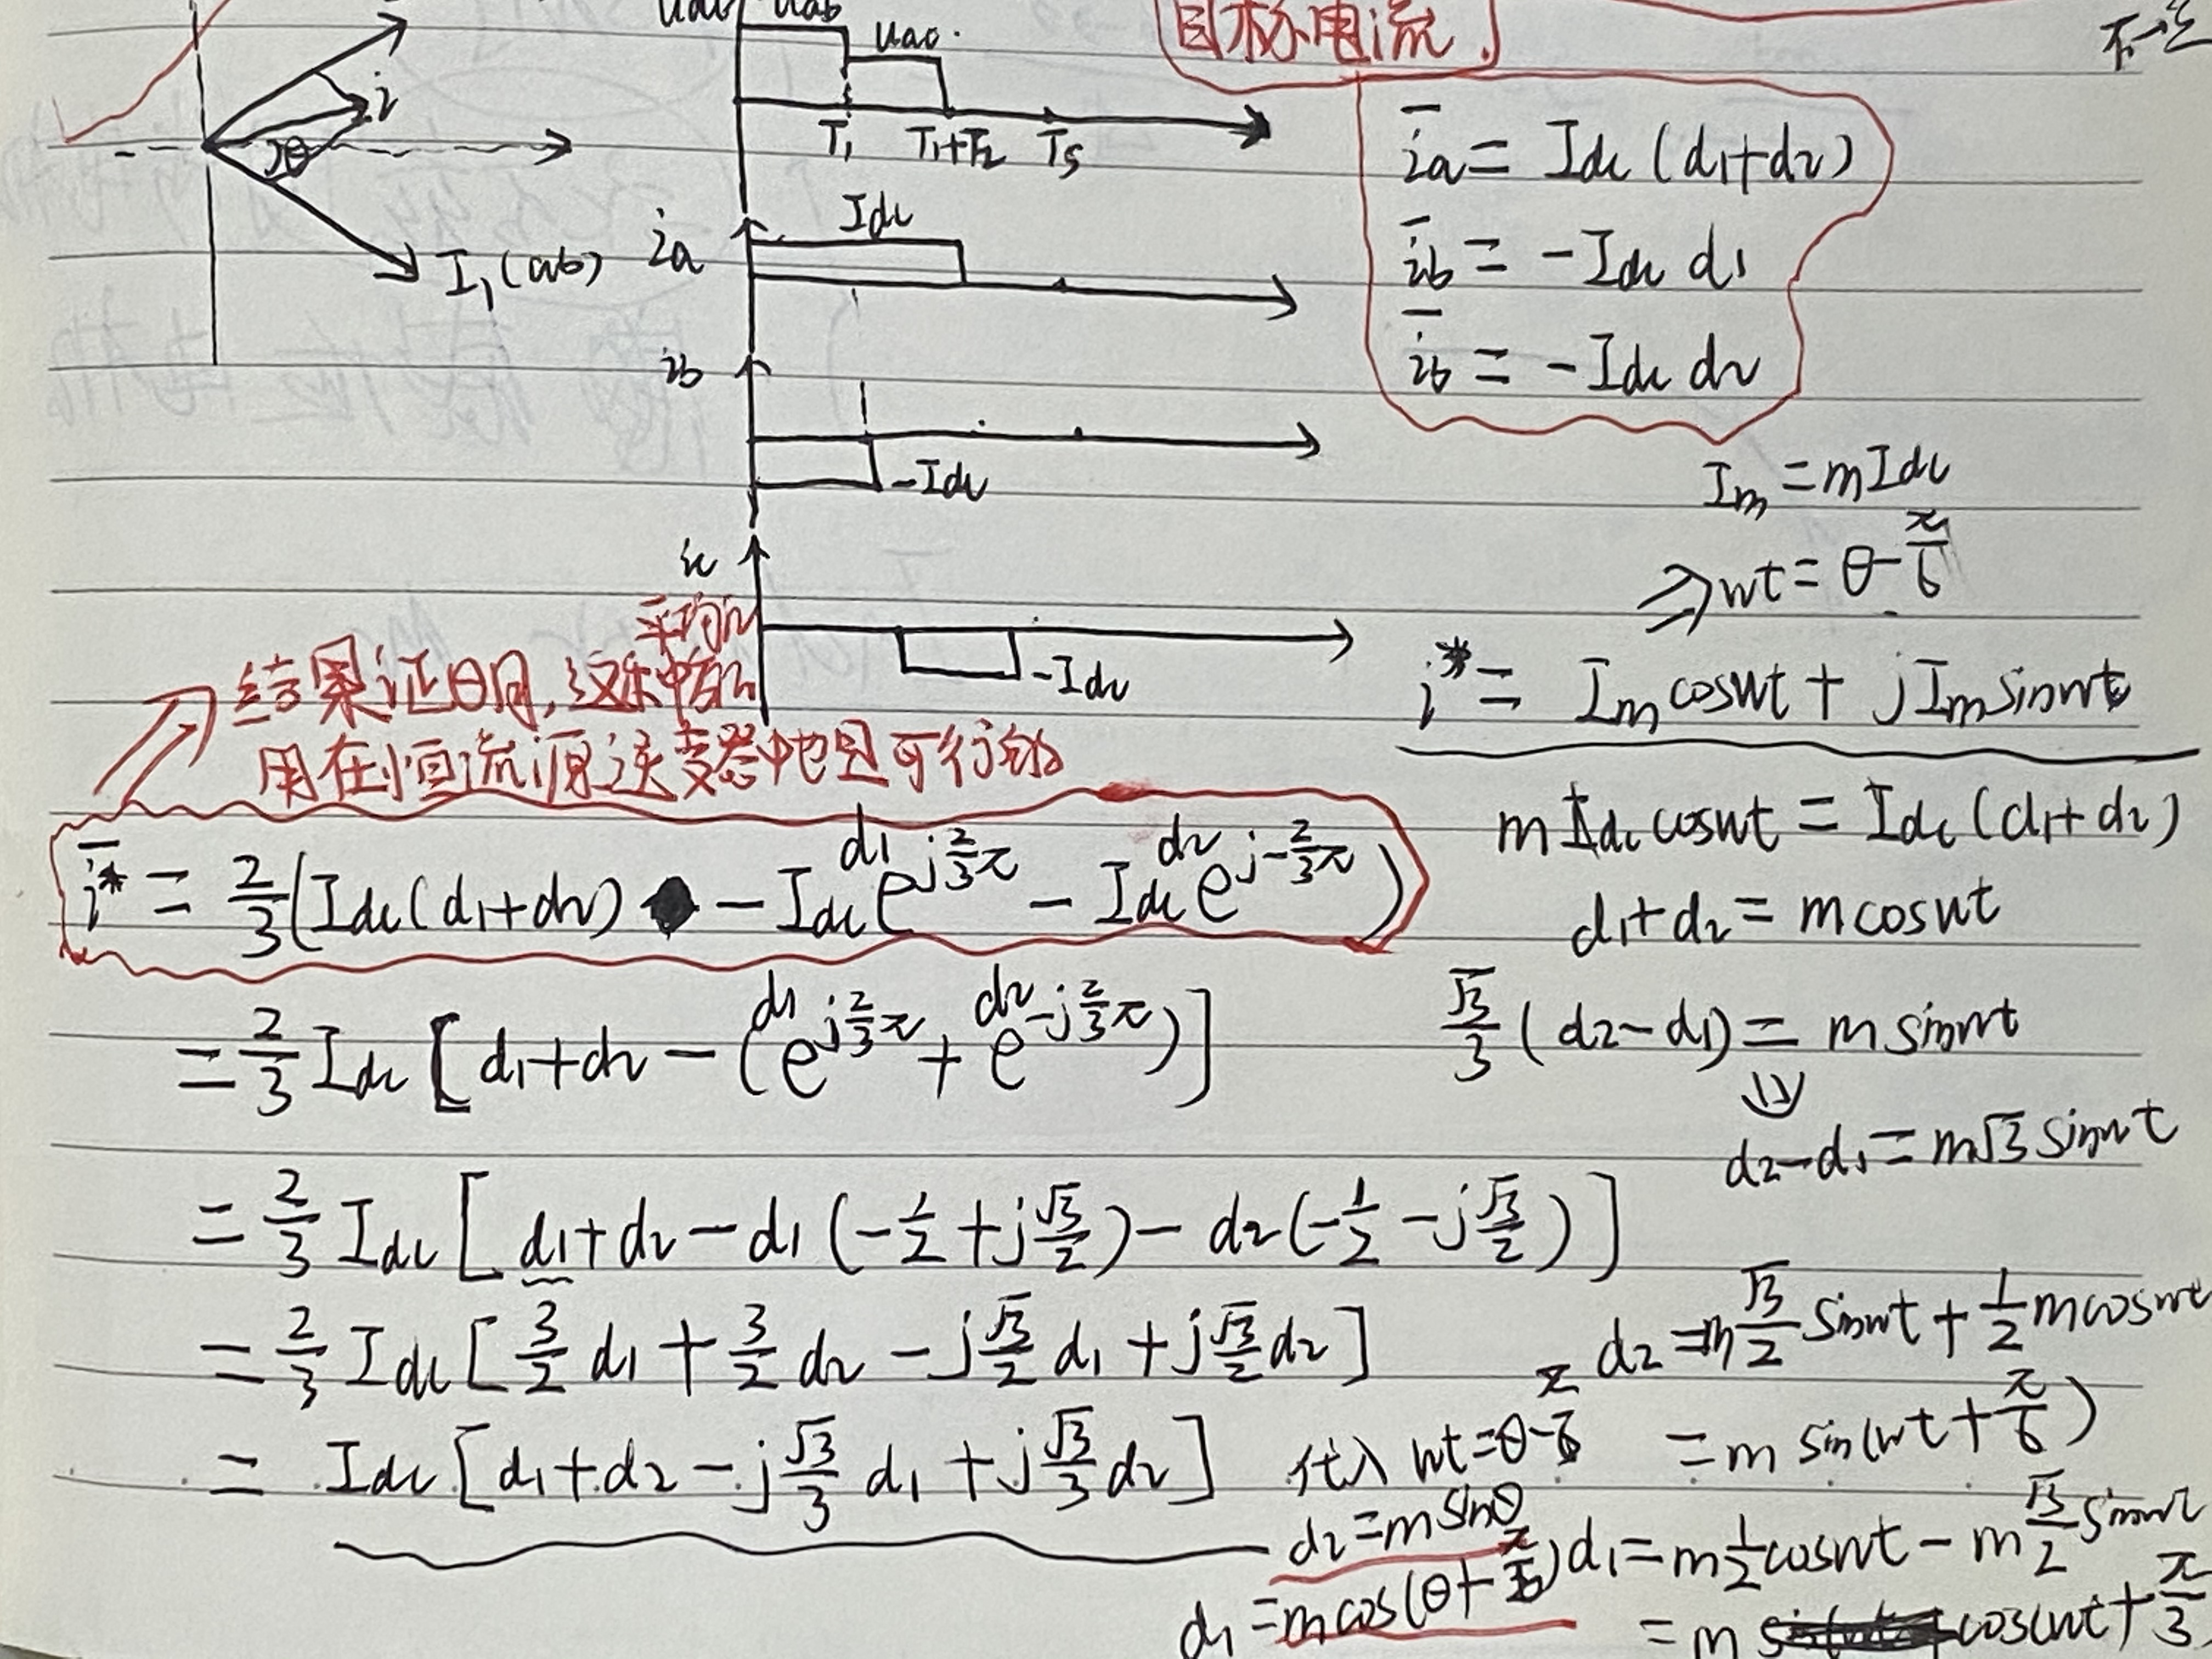 Uab
Uac
目标电流.
i
T₁ T₁+T₂ Ts
θ
I₁(ab)
ia Idc
ib
-Idc
ic
-Idc
īa = Idc (d₁+d₂)
īb = -Idc d₁
īb = -Idc d₂
Im = mIdc
⇒ wt = θ-π/6
i* = Im coswt + jIm sinwt
平均
结果证明,这种
用在恒流源逆变器中也是可行的
ī* = 2/3(Idc(d₁+d₂) - Idc d₁ e^{j2/3π} - Idc d₂ e^{j-2/3π})
= 2/3 Idc [d₁+d₂ - (d₁ e^{j2/3π} + d₂ e^{-j2/3π})]
= 2/3 Idc [d₁+d₂ - d₁(-1/2 + j√3/2) - d₂(-1/2 - j√3/2)]
= 2/3 Idc [3/2 d₁ + 3/2 d₂ - j√3/2 d₁ + j√3/2 d₂]
= Idc [d₁+d₂ - j√3/3 d₁ + j√3/3 d₂]
m Idc coswt = Idc (d₁+d₂)
d₁+d₂ = m coswt
√3/3 (d₂-d₁) = m sinwt
⇓
d₂-d₁ = m√3 sinwt
d₂ = m √3/2 sinwt + 1/2 m coswt
= m sin(wt + π/6)
代入 wt = θ-π/6
d₂ = m sinθ
d₁ = m cos(θ+π/6)
d₁ = m 1/2 coswt - m √3/2 sinwt
= m cos(wt + π/3